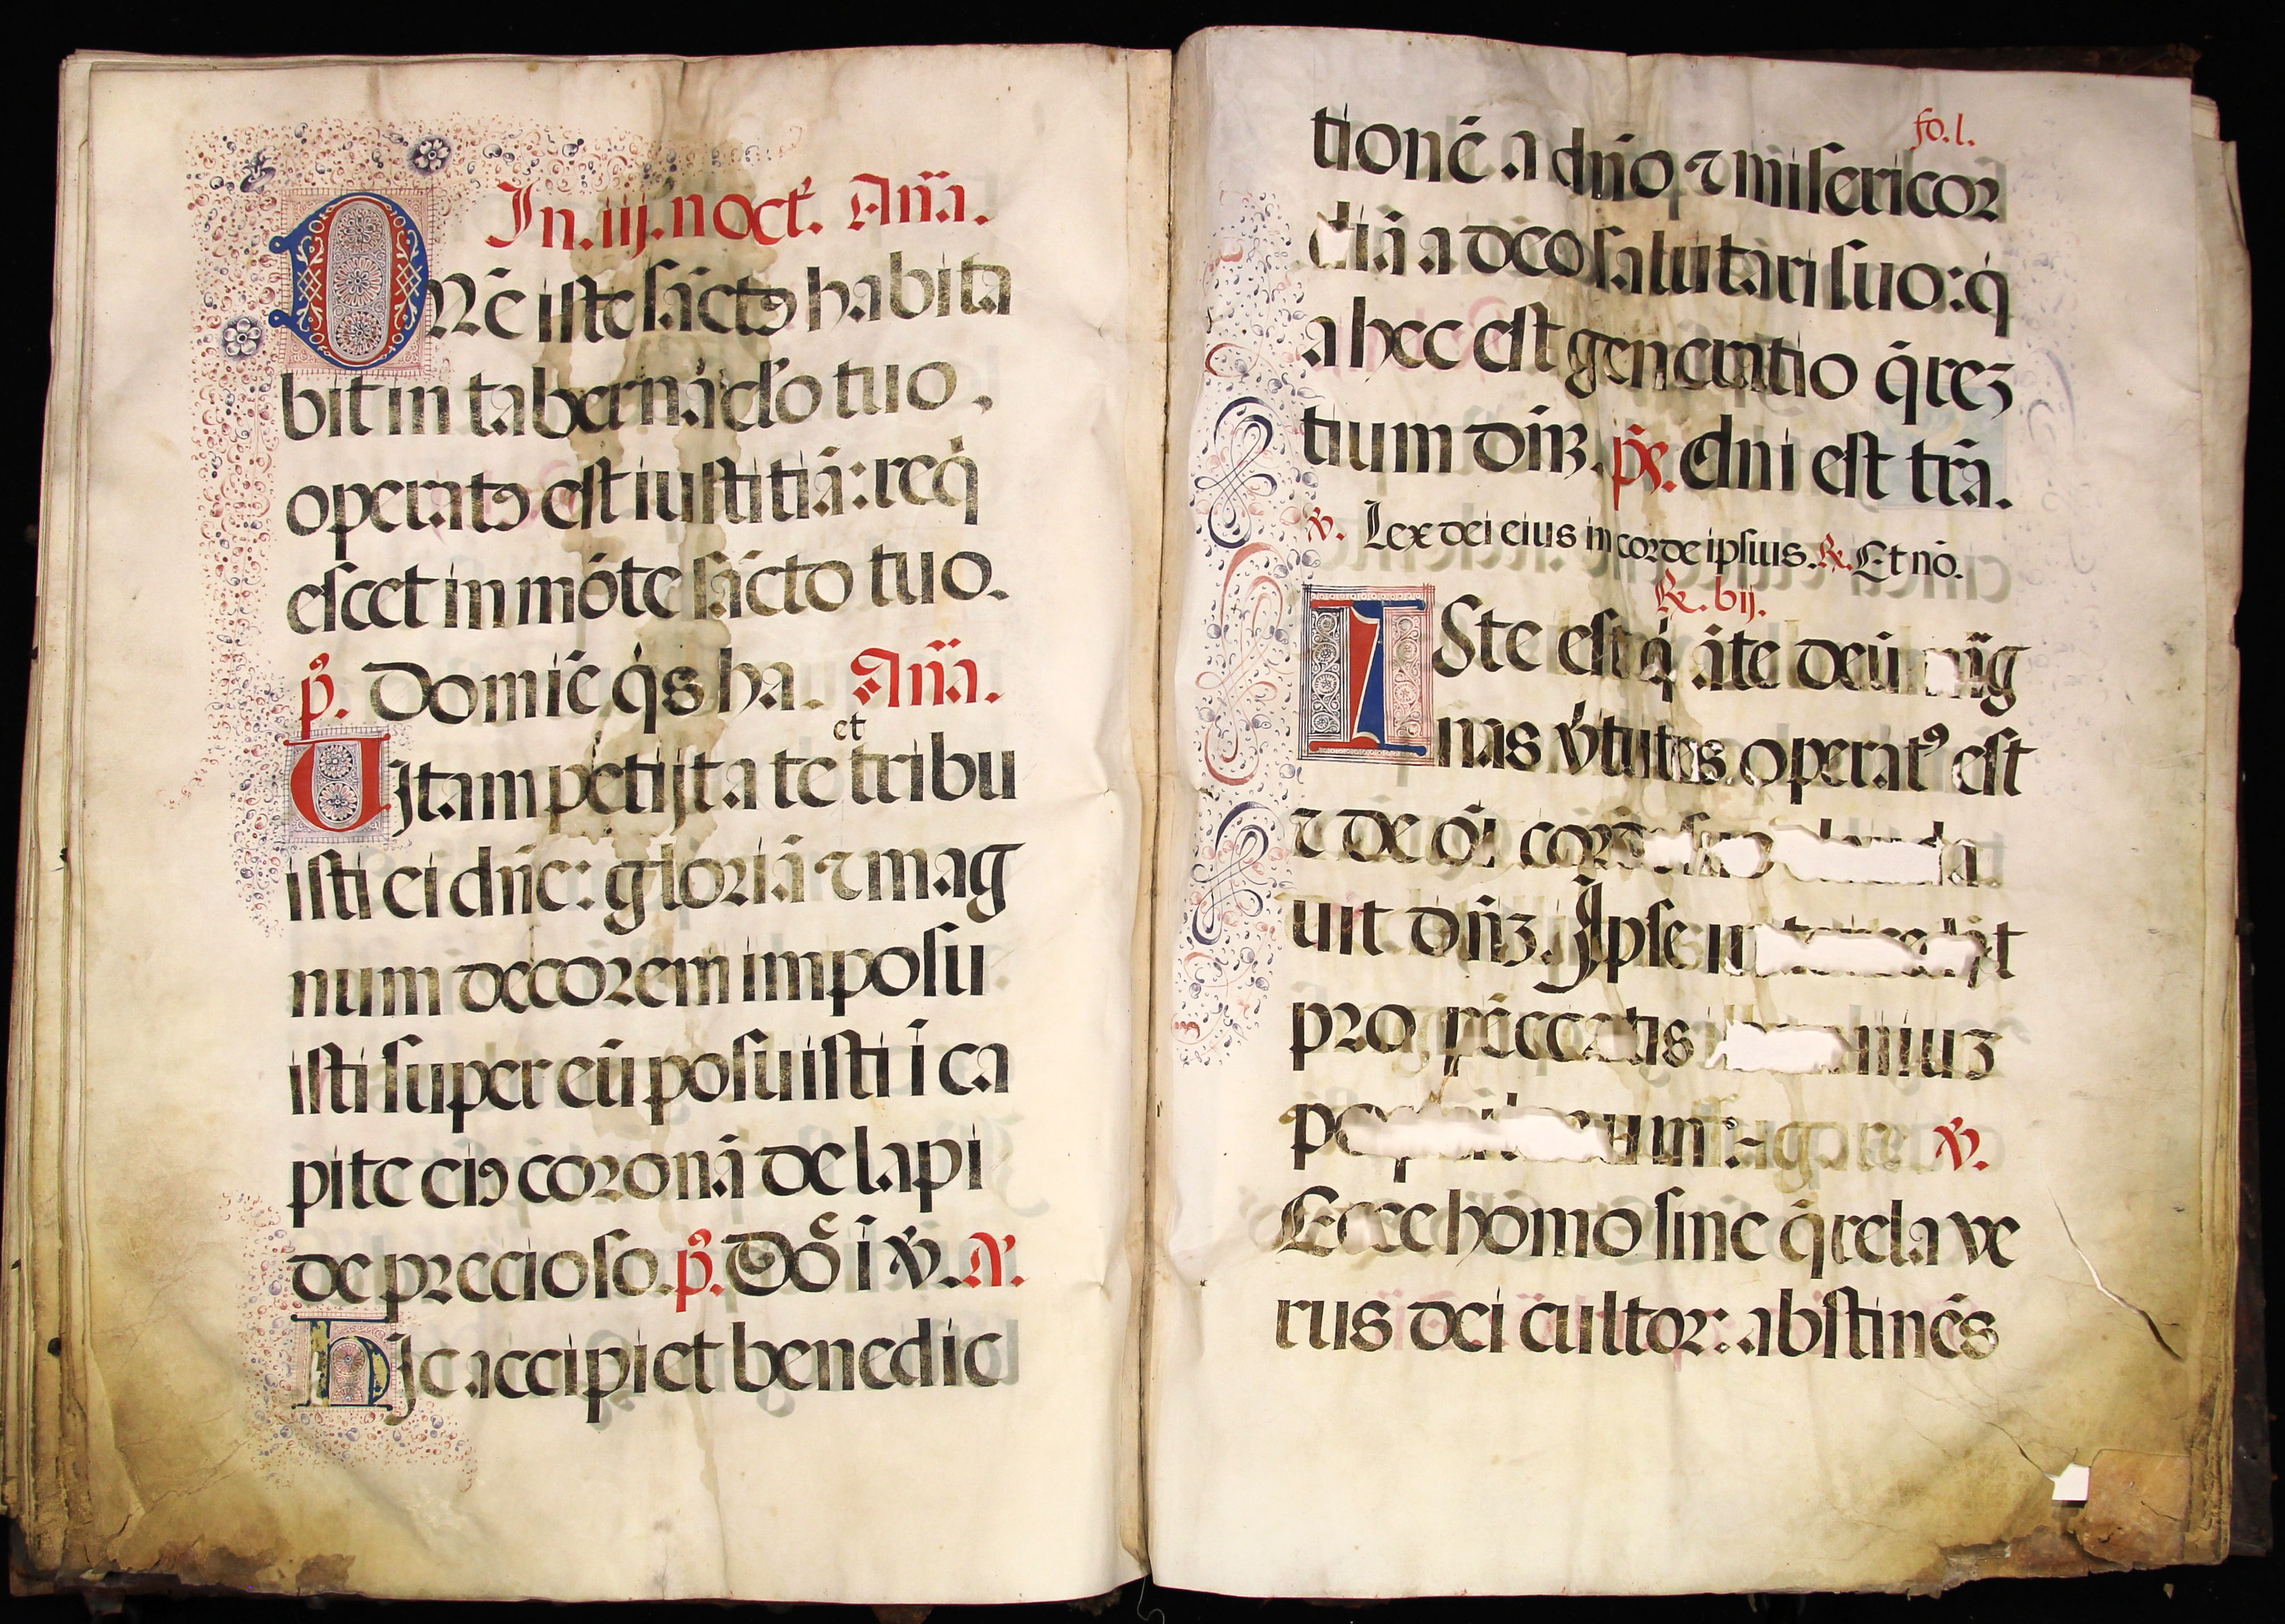 In. iij. noct̃. Añã.
Dñẽ iste sãctꝰ habita
bit in tabernãcl̃o tuo,
operatꝰ est iustitiã: req̇
escet in mõte sãcto tuo.
p̃. Domiñẽ q̇s ha. Añã.
Uitam petijt a te et tribu
isti ei dñe: gloriã ⁊ mag
num decorem imposu
isti super eũ posuisti ĩ ca
pite eiꝰ coronã de lapi
de precioso. p̃. Dõ ĩ ꝟ. A.
Hic accipiet benedic
fo. l.
tionẽ a dño ⁊ misericor
diã a deo salutari suo: q̇
a hec est generatio q̃reʒ
tium dñʒ. p̃s. dñi est trã.
ꝟ. Lex dei eius in corde ipsius. ℟. Et nõ.
℟. vij.
Iste est q̇ ãte deũ mãg
nas ỽtutes operatꝰ est
⁊ de oĩ corde
uit dñʒ. Ipse
pro peccatis niuʒ
ꝟ.
Ecce homo sine q̃rela ve
rus dei cultor: abstinẽs